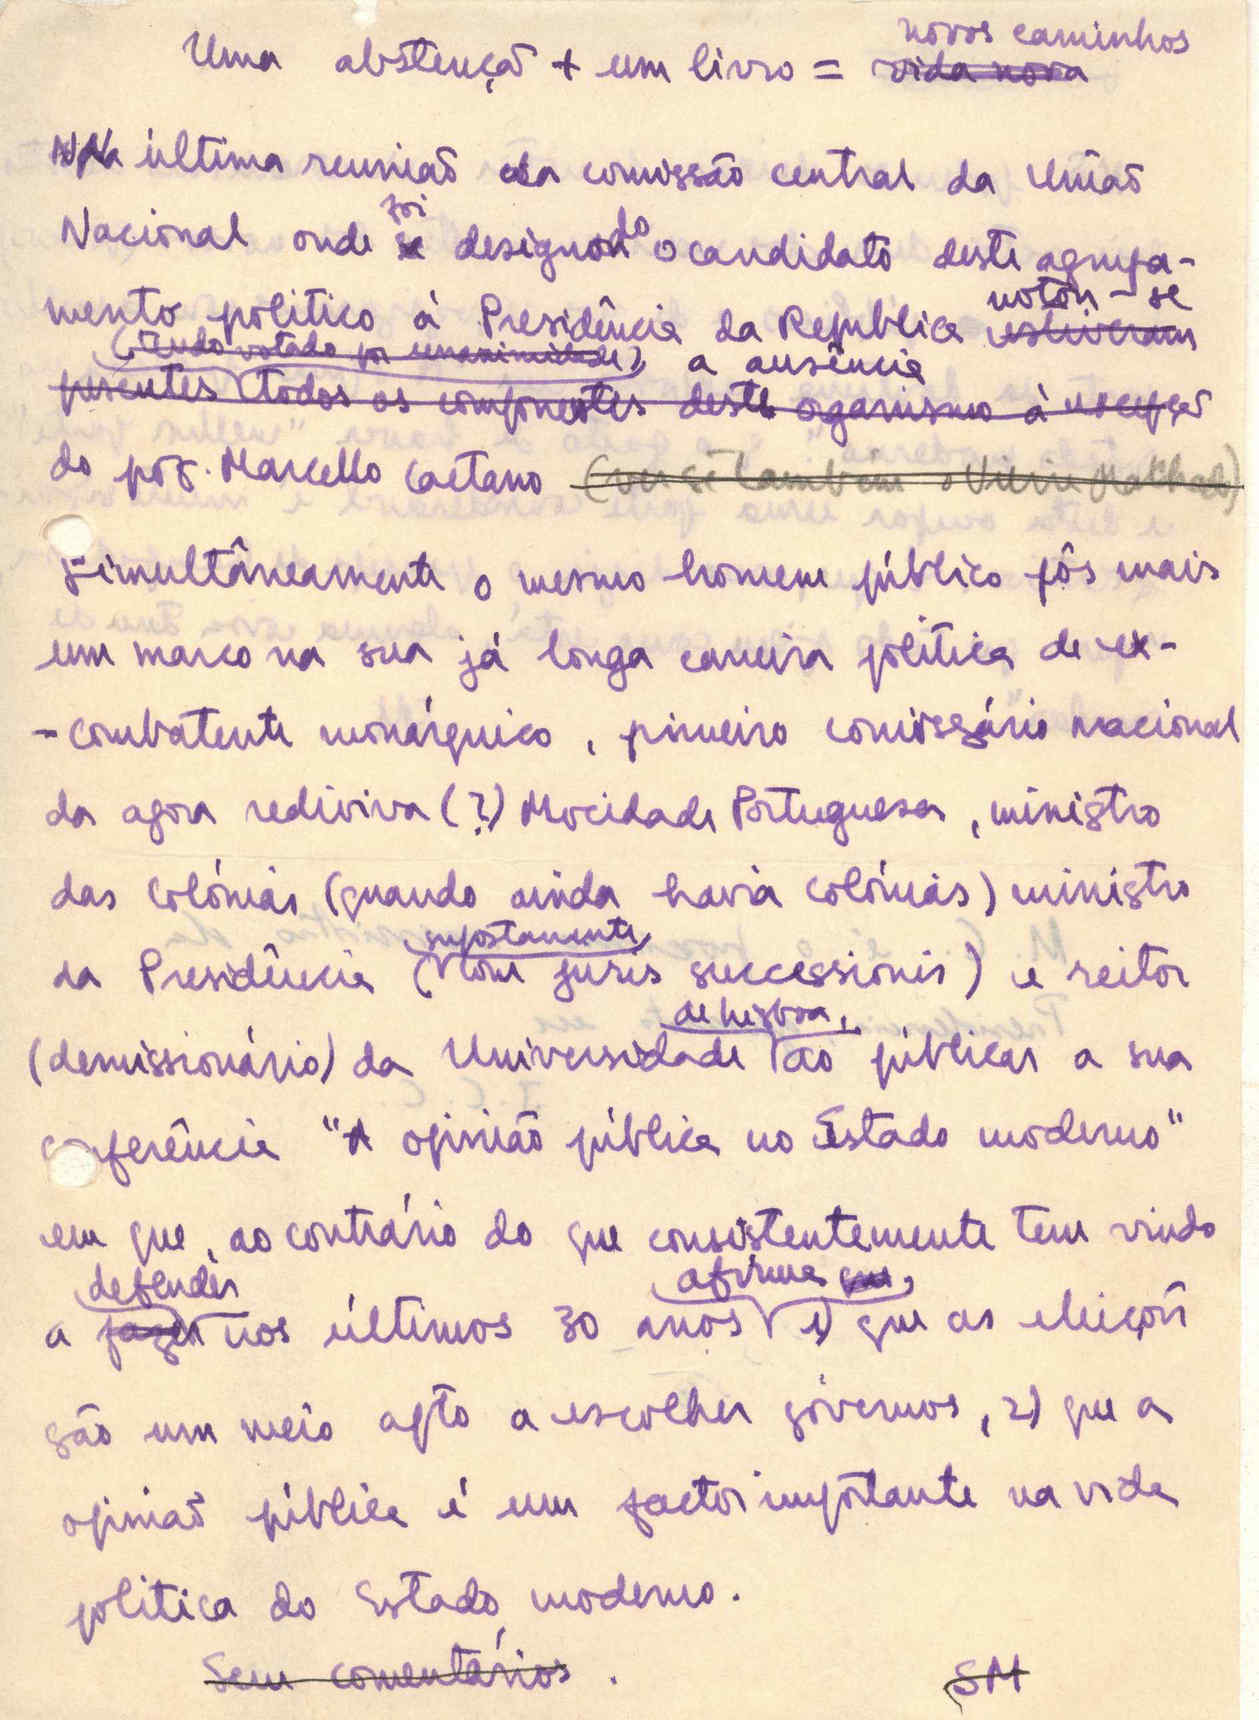 novos caminhos
Uma abstenção + um livro = vida nova
Na última reunião da comissão central da União
foi do
Nacional onde se designou o candidato deste agrupa-
notou-se
mento politico à Presidência da Republica estiveram
(tendo votado por unanimidade) a ausência
presentes todos os componentes deste organismo à excepção
do prof. Marcello Caetano (ver se também o
Simultâneamente o mesmo homem público pôs mais
um marco na sua já longa carreira politica de ex-
-combatente monárquico, primeiro comissário nacional
da agora rediviva (?) Mocidade Portuguesa, ministro
das Colónias (quando ainda havia colónias) ministro
supostamente
da Presidência (com juris successionis) e reitor
de Lisboa,
(demissionário) da Universidade ao públicar a sua
conferência "A opinião pública no Estado moderno"
em que, ao contrário do que consistentemente tem vindo
defender afirma que
a fazer nos últimos 30 anos 1) que as eleições
são um meio apto a escolher govêrnos, 2) que a
opinião pública é um factor importante na vida
politica do Estado moderno.
Sem comentários. SM